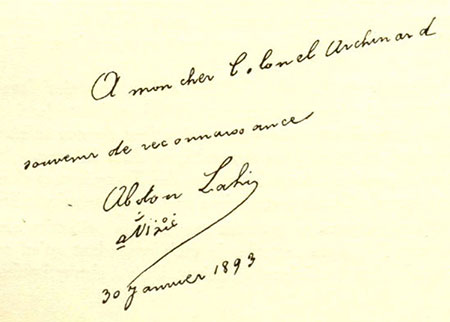 A mon cher Colonel Archinard
souvenir de reconnaissance
Abdon Lahi
30 Janvier 1893